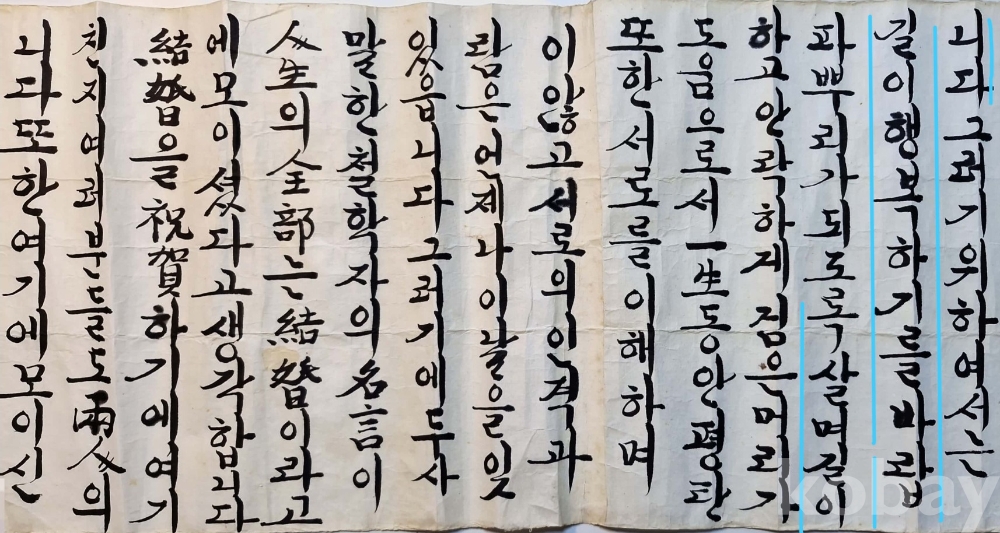 니다또한여기에모이신
친지여러분들도兩人의
結婚을祝賀하기에여기
에모이셨다고생각합니다
人生의全部는結婚이라고
말한철학자의名言이
있읍니다그러기에두사
람은언제나이날을잊
이않고서로의인격과
또한서로를이해하며
도움으로서一生동안평탄
하고안락하게검은머리가
파뿌리가되도록살며길이
길이행복하기를바랍
니다그러기위하여서는
kobay